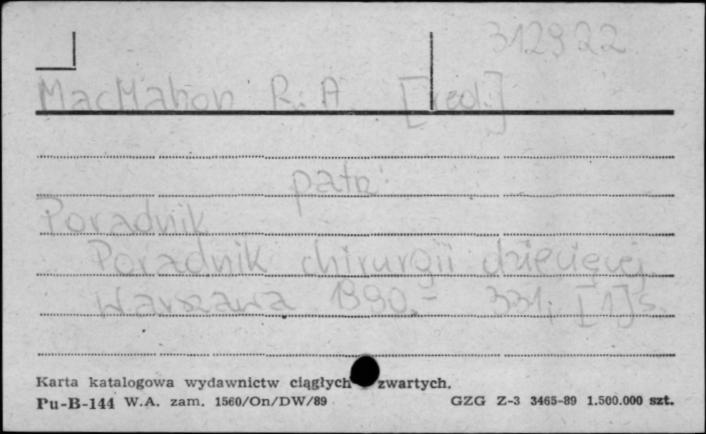 312922
MacMahon R. A. [red.]
patrz:
Poradnik
Poradnik chirurgii dziecięcej.
Warszawa 1990.- 331, [1] s.
Karta katalogowa wydawnictw ciągłych zwartych.
Pu-B-144 W.A. zam. 1560/On/DW/89 GZG Z-3 3465-89 1.500.000 szt.